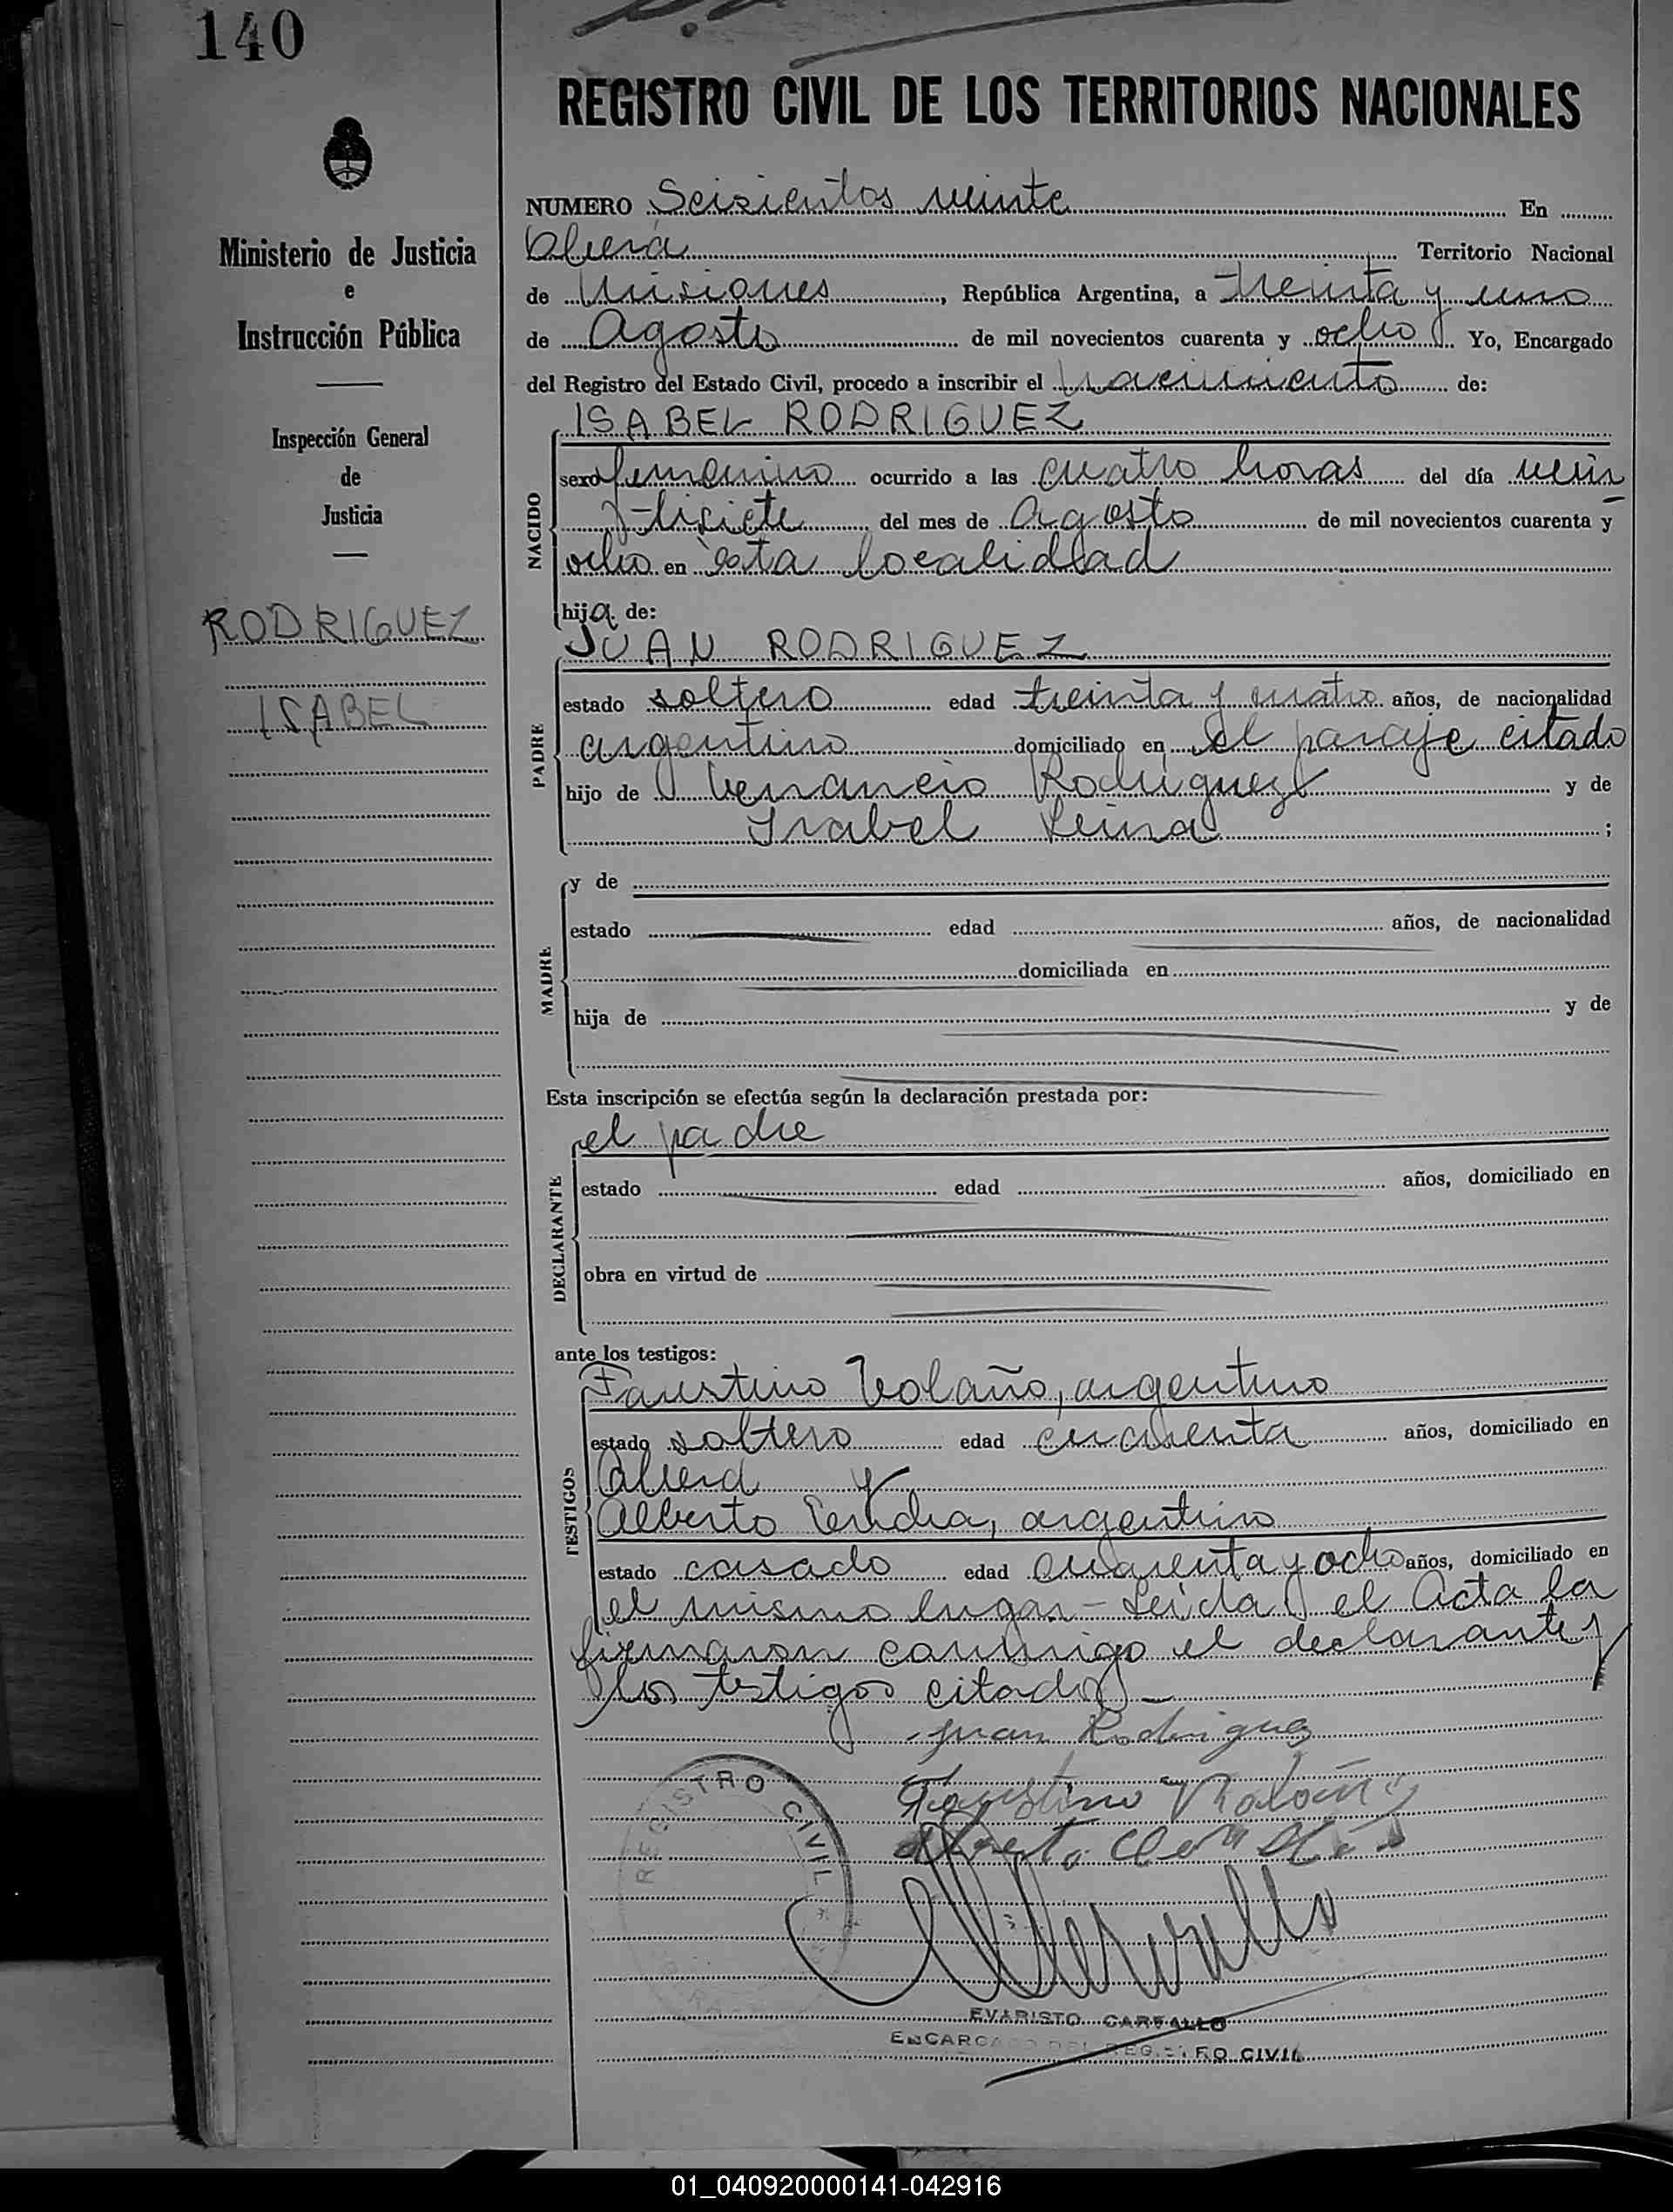 140
REGISTRO CIVIL DE LOS TERRITORIOS NACIONALES
Ministerio de Justicia
e
Instrucción Pública
Inspección General
de
Justicia
RODRIGUEZ
ISABEL
NUMERO Seisientos veinte En
Oberá Territorio Nacional
de Misiones, República Argentina, a treinta y uno
de Agosto de mil novecientos cuarenta y ocho Yo, Encargado
del Registro del Estado Civil, procedo a inscribir el nacimiento de:
NACIDO
ISABEL RODRIGUEZ
sexo femenino ocurrido a las cuatro horas del día vein
tisiete del mes de Agosto de mil novecientos cuarenta y
ocho en ésta localidad
hija de:
PADRE
JUAN RODRIGUEZ
estado soltero edad treinta y cuatro años, de nacionalidad
argentino domiciliado en el paraje citado
hijo de Venancio Rodriguez y de
Isabel ;
MADRE
y de
estado edad años, de nacionalidad
domiciliada en
hija de y de
Esta inscripción se efectúa según la declaración prestada por:
DECLARANTE
el padre
estado edad años, domiciliado en
obra en virtud de
ante los testigos:
TESTIGOS
Faustino argentino
estado soltero edad cincuenta años, domiciliado en
Oberá y
Alberto argentino
estado casado edad cuarenta y ocho años, domiciliado en
el mismo lugar - Leida el Acta la
firmaron conmigo el declarante y
los testigos citados -
Juan Rodriguez
Faustino
REGISTRO CIVIL
EVARISTO CARVALLO
ENCARGADO DEL REGISTRO CIVIL
01_040920000141-042916